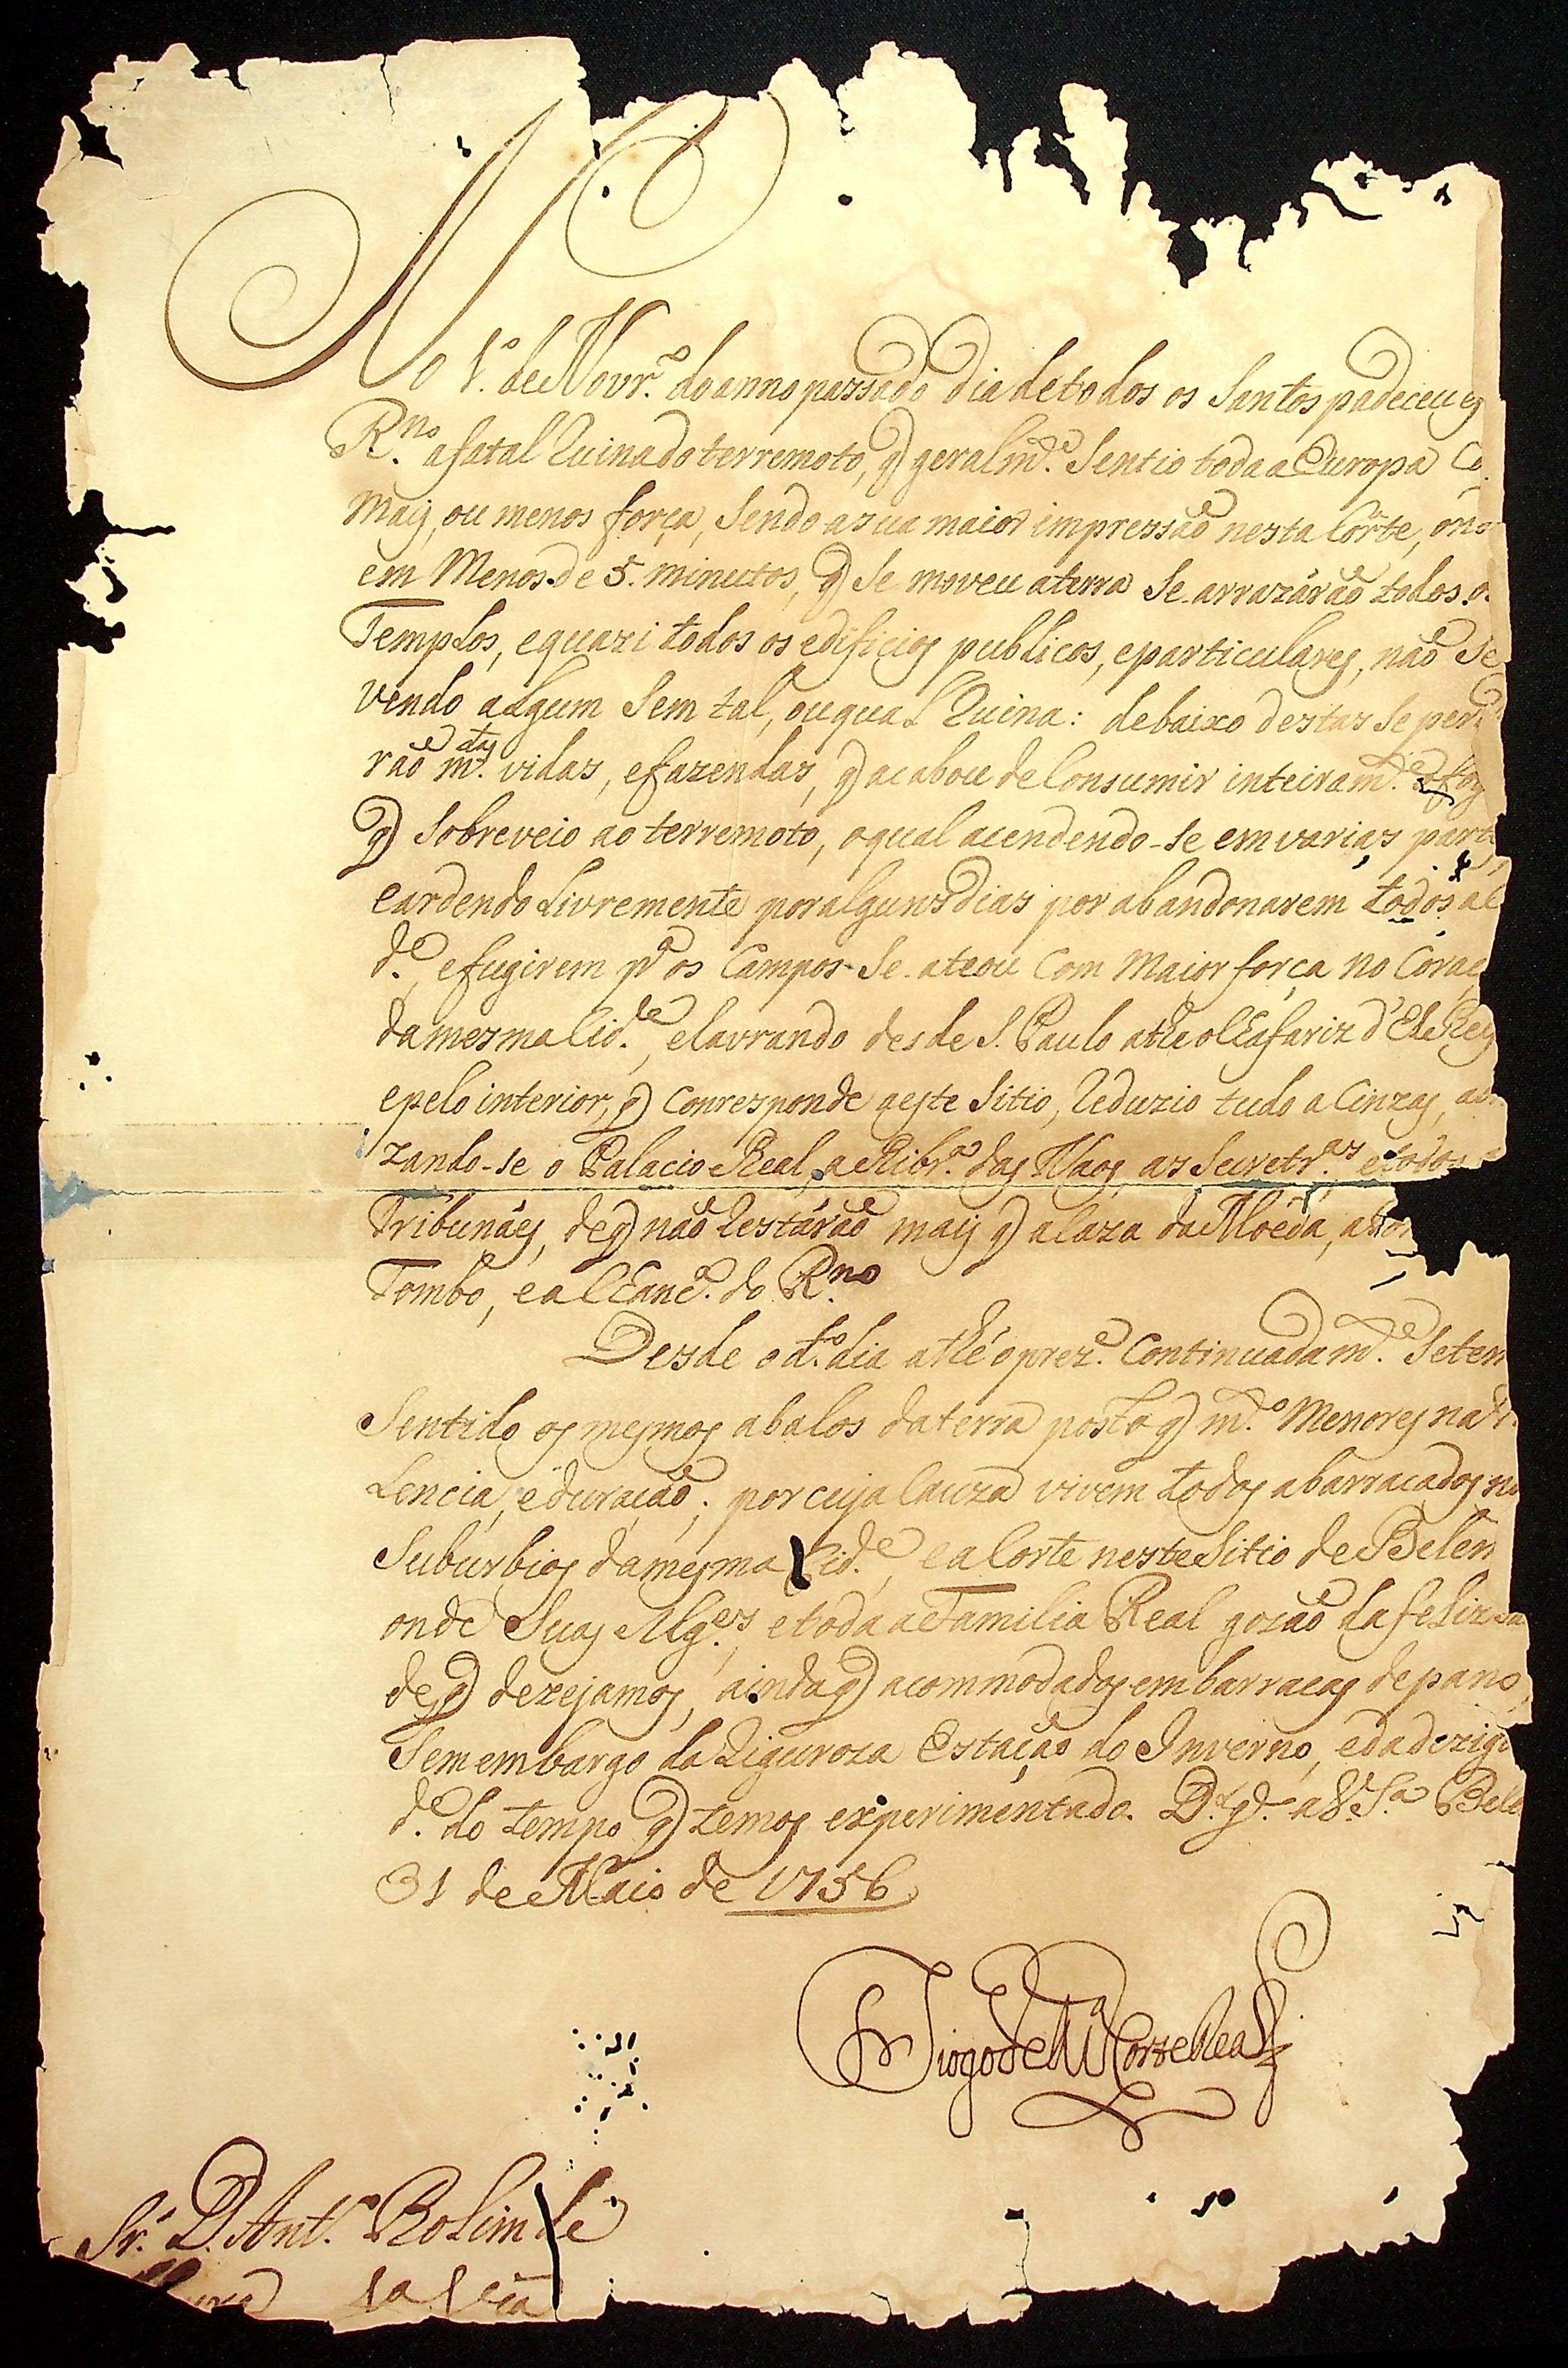 No 1.º de Novr.º do anno passado dia de todos os Santos padeceu e
R.no a fatal Ruina do terremoto, q̃ geralm.e Sentio toda a Europa Co
Mais, ou menos força, Sendo a sua maior impressaõ nesta Corte, on
em Menos de 5. minutos, q̃ Se moveu a terra Se arrazáraõ todos o
Templos, e quazi todos os edificios publicos, e particulares, naõ Se
vendo algum Sem tal, ou qual Ruina: debaixo destas Se per
raõ m.tas vidas, e fazendas, q̃ acabou de Consumir inteiram.e o fog
q̃ Sobreveio ao terremoto, o qual acendendo-se em varias part
e ardendo Livremente por alguns dias por abandonarem todos a C
d.e, e fugirem p.a os Campos Se ateou Com Maior força no Coraç
da mesma Cid.e, e lavrando desde S. Paulo athe o Chafariz d'El Rey
e pelo interior, q̃ Corresponde a este Sitio, Reduzio tudo a Cinzas, ab
zando-se o Palacio Real, a Ribr.a das Naos, as Secretr.as e todos
Tribunáes, de q̃ naõ Restáraõ mais q̃ a Caza da Moéda, a Tor
Tombo, e a Chanc.a do R.no
Desde o d.o dia athé o prez.e Continuadam.e Se tem
Sentido os mesmos abalos da terra posto q̃ m.to Menores na
Lencia, e duraçaõ; por cuja Cauza vivem todos abarracados n
Suburbios da mesma Cid.e, e a Corte neste Sitio de Belem
onde Suas Mg.es, e toda a Familia Real gozaõ da feliz
de q̃ dezejamos, ainda q̃ acommodados em barracas de pano,
Sem embargo da Rigoroza Estaçaõ do Inverno, e da dezigu
d.e do tempo q̃ temos experimentado. D.s g.e a V. S.a Bele
31 de Maio de 1756
Diogo de M.ca Corte Real
Sr. D. Ant.o Rolim de